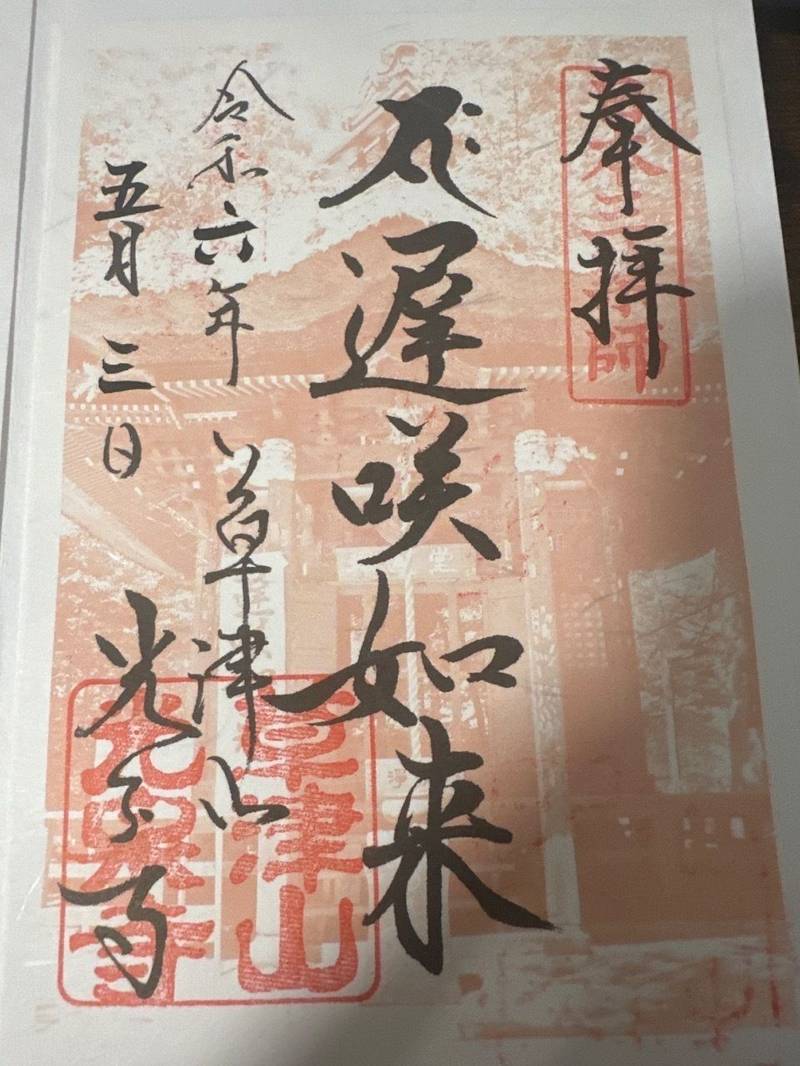 奉拝
日本三薬師
遅咲如来
令和六年
五月三日
草津山
光泉寺
草津山
光泉寺